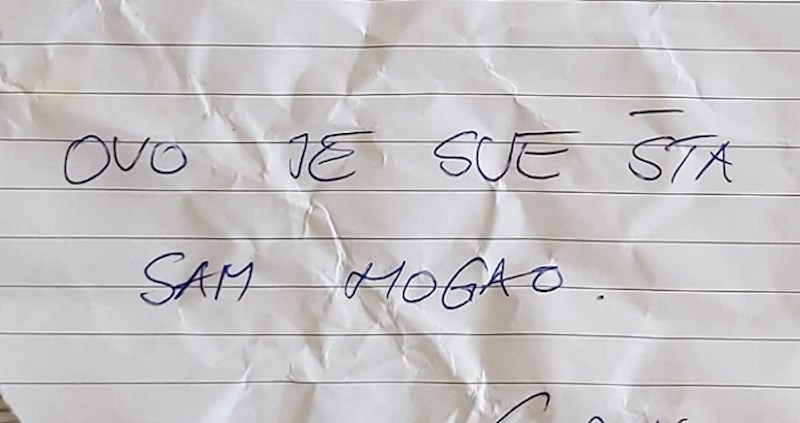 OVO JE SVE ŠTA
SAM MOGAO.